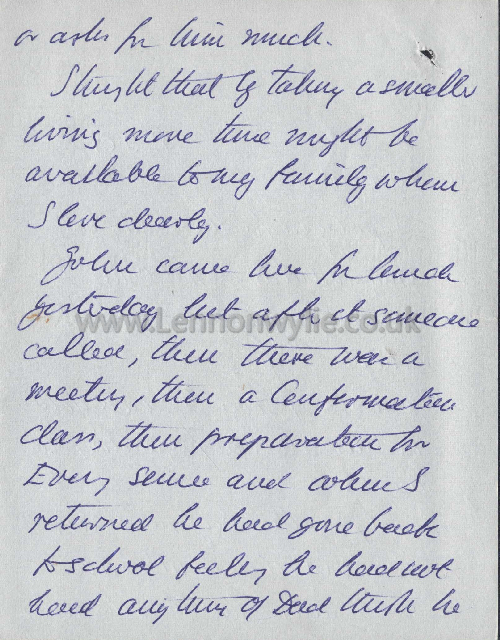 or asks for him much.
I thought that by taking a smaller
living more time might be
available to my family whom
I love dearly.
John came here for lunch
yesterday but after it someone
www.Lennonwylie.co.uk
called, then there was a
meeting, then a Confirmation
class, then preparation for
Evening service and when I
returned he had gone back
to school feeling he had not
had anything of Dad think he